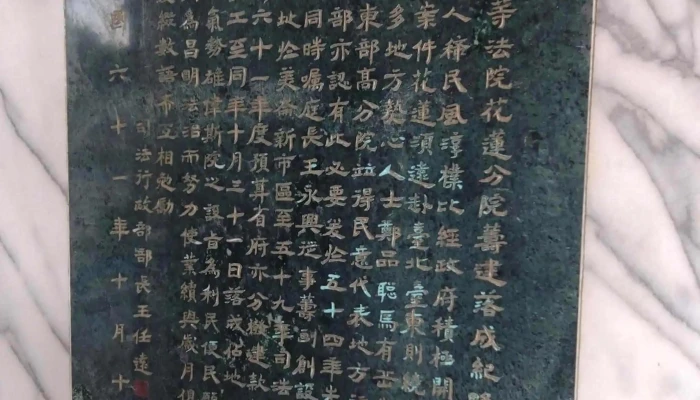 等法院花蓮分院籌建落成紀
人稀民風淳樸比經政府積極開
業件花蓮須遠赴臺北臺東則繞
多地方熱心人士鄭品聰馬有岳
東部高分院並得民意代表地方
部亦認有此必要爰於五十四年
同時囑庭長王永興從事籌劃創設
址於美崙新市區至五十九年司法
六十一年度預算省府亦分撥建款
工至同年十月三十一日落成佔地
氣勢雄偉斯院之設旨為利民便民
為昌明法治而努力使業績與歲月俱
綴數語希互相勉勵
司法行政部部長王任遠
國六十一年十月